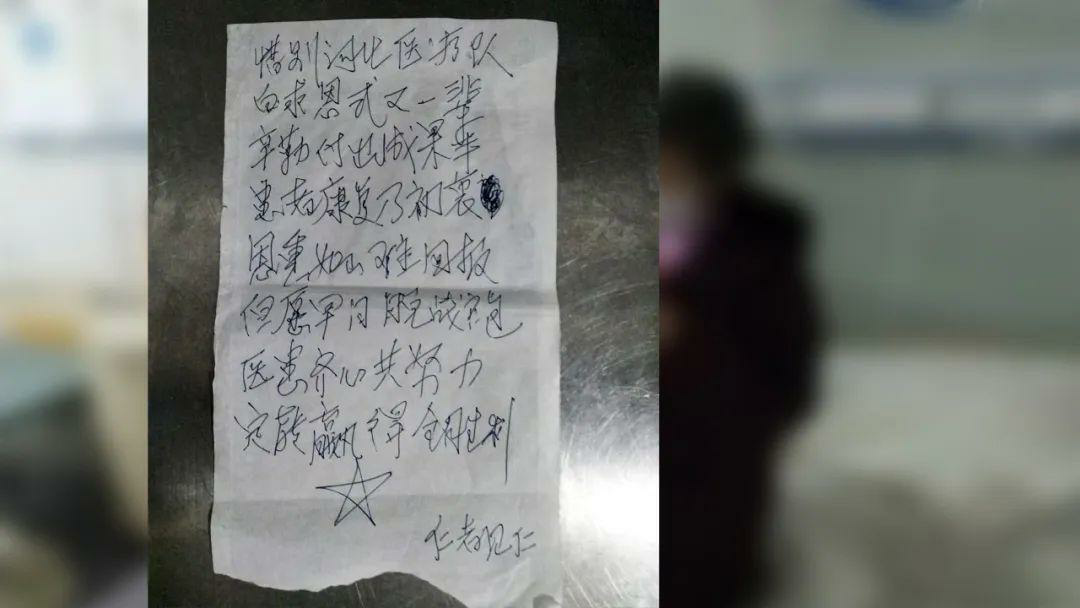 惜别河北医疗队
白求恩式又一辈
辛勤付出成果华
患者康复乃初衷
恩重如山难回报
但愿早日脱战袍
医患齐心共努力
定能赢得全胜利
仁者见仁